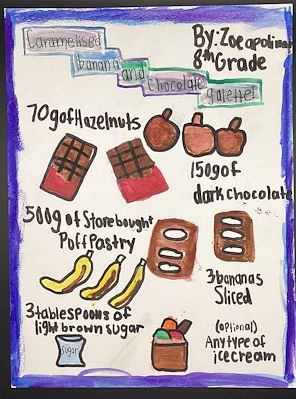 Caramelised
banana and
chocolate
galette!
By: Zoe apolinar
8th Grade
70g of Hazelnuts
150g of
dark chocolate
500g of Store bought
Puff Pastry
3 bananas
Sliced
3 tablespoons of
light brown sugar
sugar
(optional)
Any type of
icecream